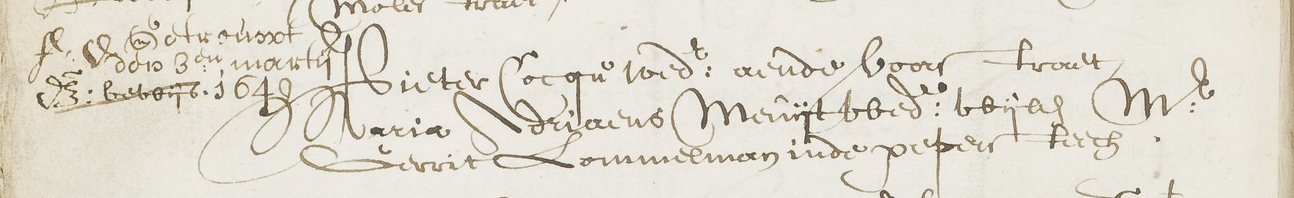 Getrouwt
den 3en martij
1648
Pieter Cocqu wedr: aende voorstraet
Maria Adriaens Meuijt wedwe: wijlen Mr:
Gerrit Lommelman inde pepersteech.